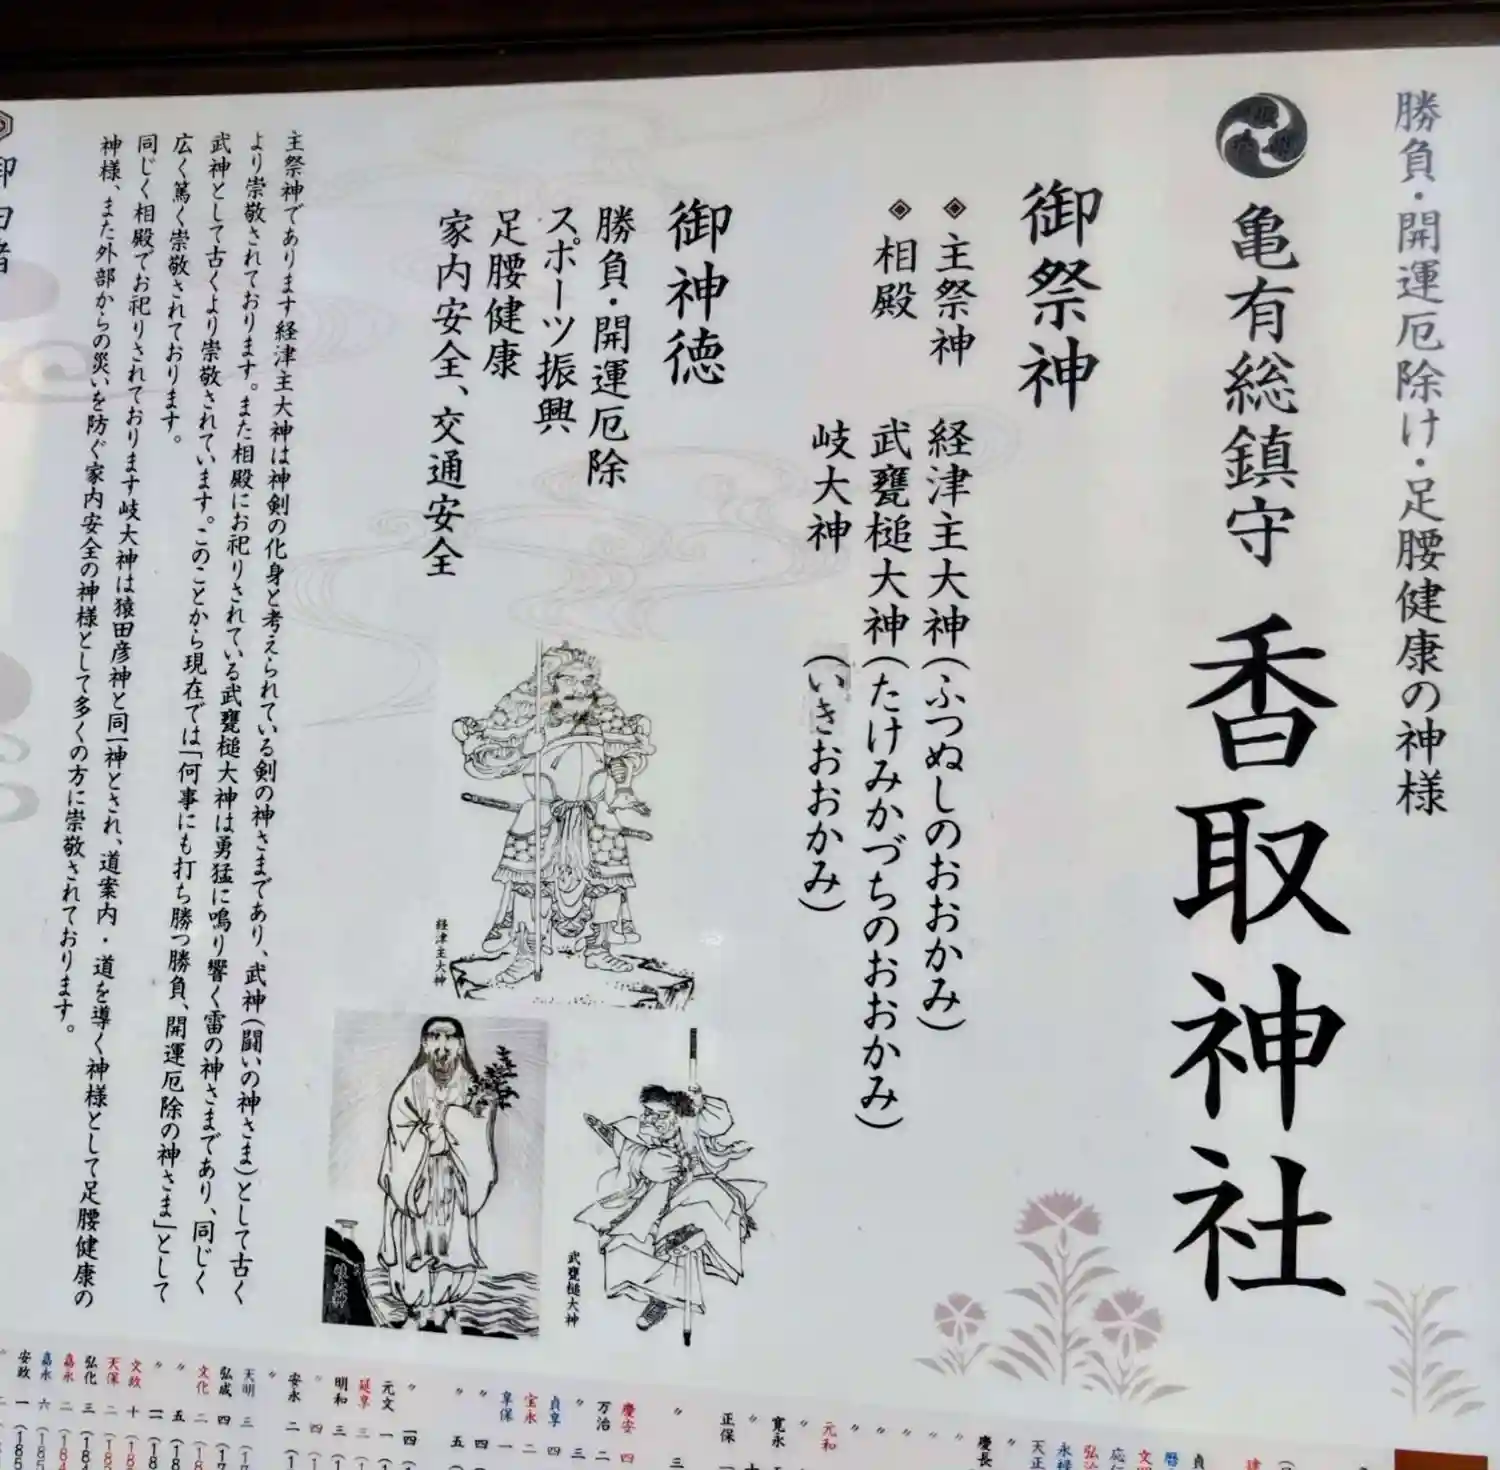 勝負・開運厄除け・足腰健康の神様
亀有総鎮守 香取神社
御祭神
◈ 主祭神 経津主大神(ふつぬしのおおかみ)
◈ 相殿 武甕槌大神(たけみかづちのおおかみ)
岐大神 (いきおおかみ)
御神徳
勝負・開運厄除
スポーツ振興
足腰健康
家内安全、交通安全
経津主大神
武甕槌大神
岐大神
主祭神であります経津主大神は神剣の化身と考えられている剣の神さまであり、武神(闘いの神さま)として古く
より崇敬されております。また相殿にお祀りされている武甕槌大神は勇猛に鳴り響く雷の神さまであり、同じく
武神として古くより崇敬されています。このことから現在では「何事にも打ち勝つ勝負、開運厄除の神さま」として
広く篤く崇敬されております。
同じく相殿でお祀りされております岐大神は猿田彦神と同一神とされ、道案内・道を導く神様として足腰健康の
神様、また外部からの災いを防ぐ家内安全の神様として多くの方に崇敬されております。
慶長
元和
〃
寛永
〃
正保
〃
慶安 四
万治 二
〃 三
貞享 四
宝永 二
享保 一
〃 四
〃 五
〃 一四
元文 一
延享 三
明和 三
〃 四
安永 二
〃
天明 三
弘成 四
文化 二
〃 五
〃
文政 十
天保 二
弘化 三
嘉永 二
嘉永 六
安政 一